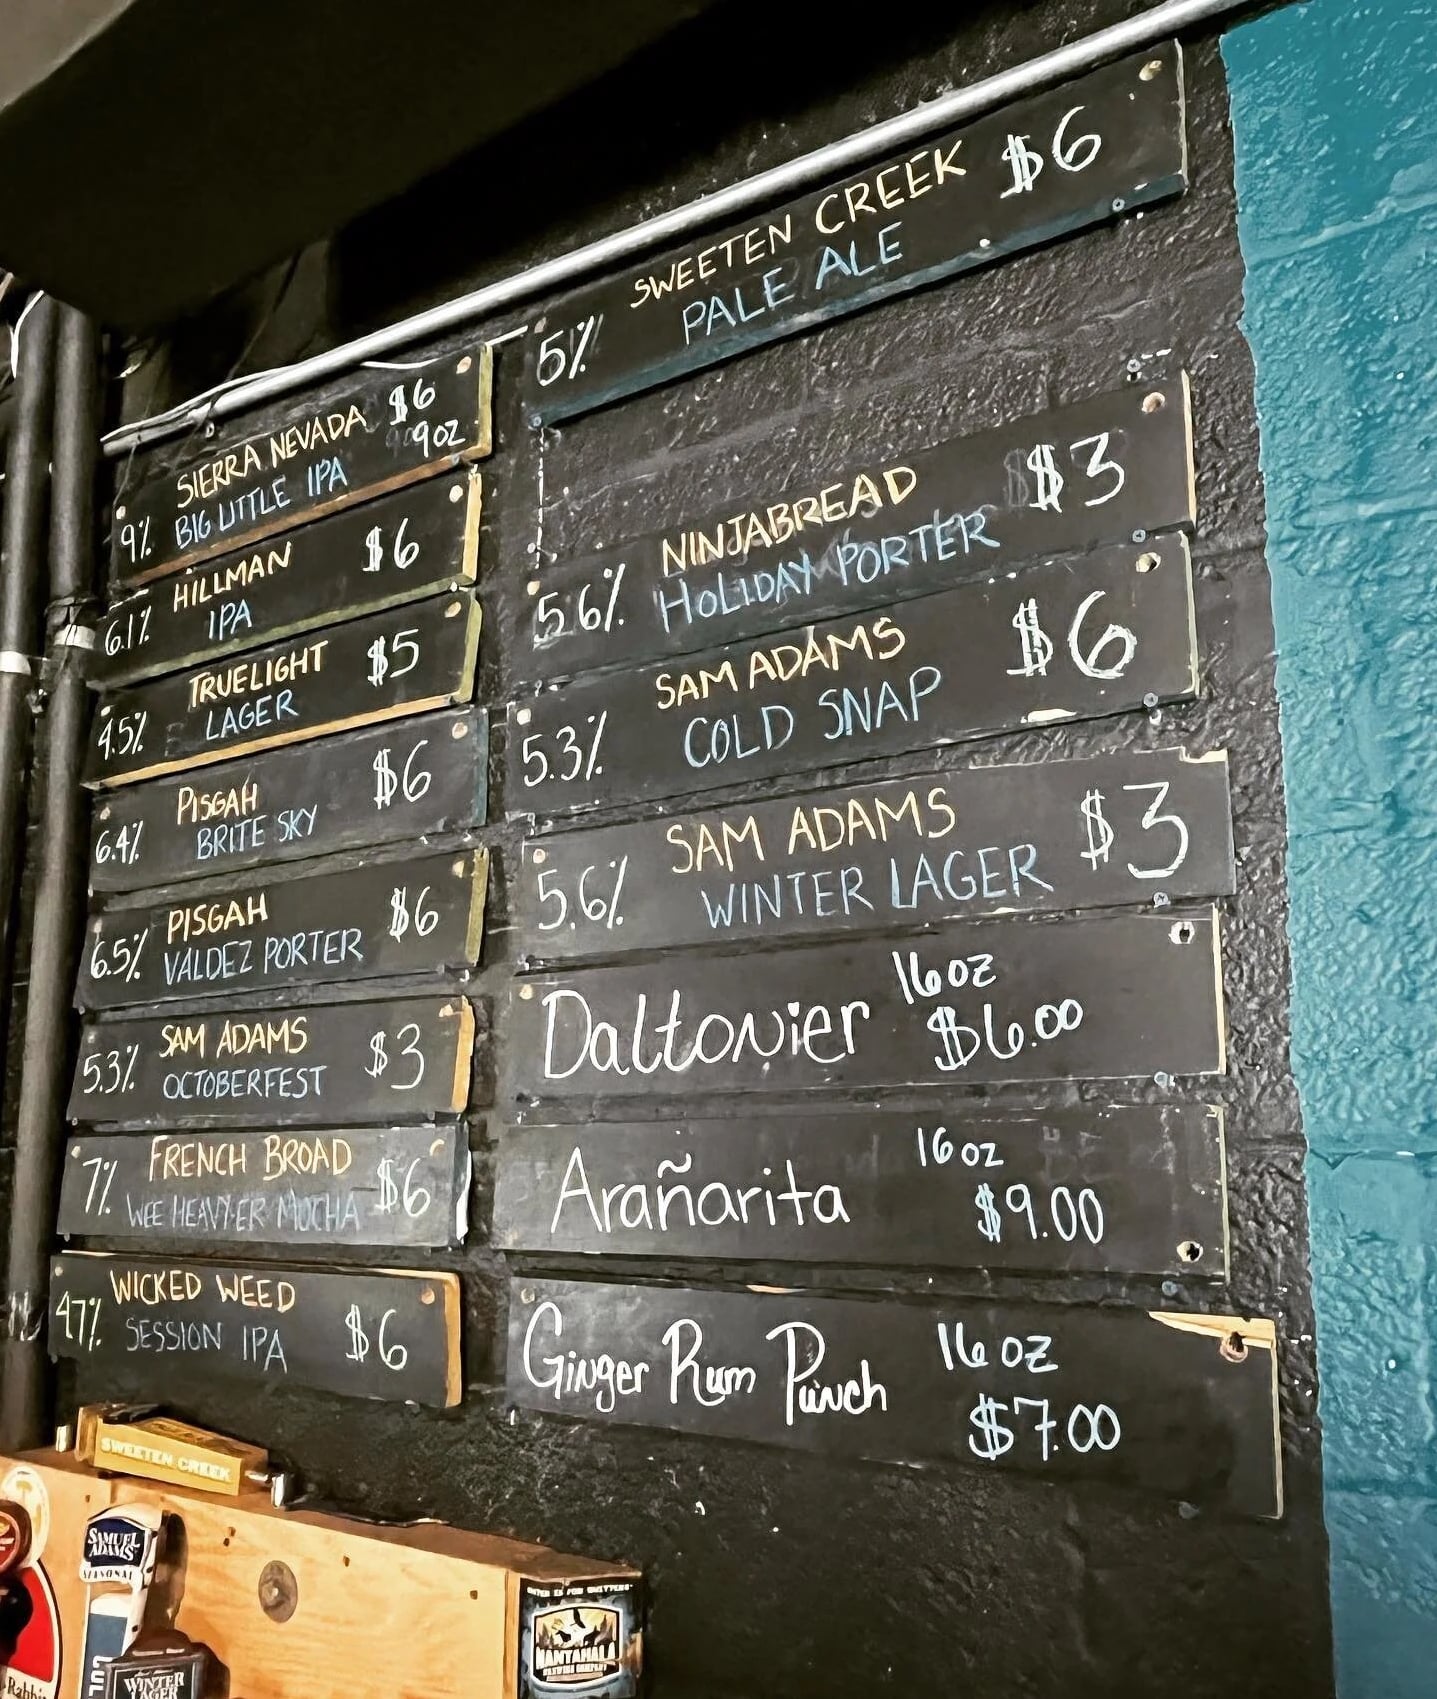 SIERRA NEVADA $6
9oz
9% BIG LITTLE IPA
HILLMAN $6
6.1% IPA
TRUELIGHT $5
4.5% LAGER
PISGAH $6
6.4% BRITE SKY
PISGAH $6
6.5% VALDEZ PORTER
SAM ADAMS $3
5.3% OCTOBERFEST
7% FRENCH BROAD $6
WEE HEAVY-ER MOCHA
WICKED WEED
47% SESSION IPA $6
SWEETEN CREEK $6
5% PALE ALE
NINJABREAD $3
5.6% HOLIDAY PORTER
SAM ADAMS $6
5.3% COLD SNAP
SAM ADAMS $3
5.6% WINTER LAGER
Daltonier 16oz
$6.00
Arañarita 16oz
$9.00
Ginger Rum Punch 16oz
$7.00
SWEETEN CREEK
SAMUEL
ADAMS
SEASONAL
WINTER
LAGER
NANTAHALA
BREWING COMPANY